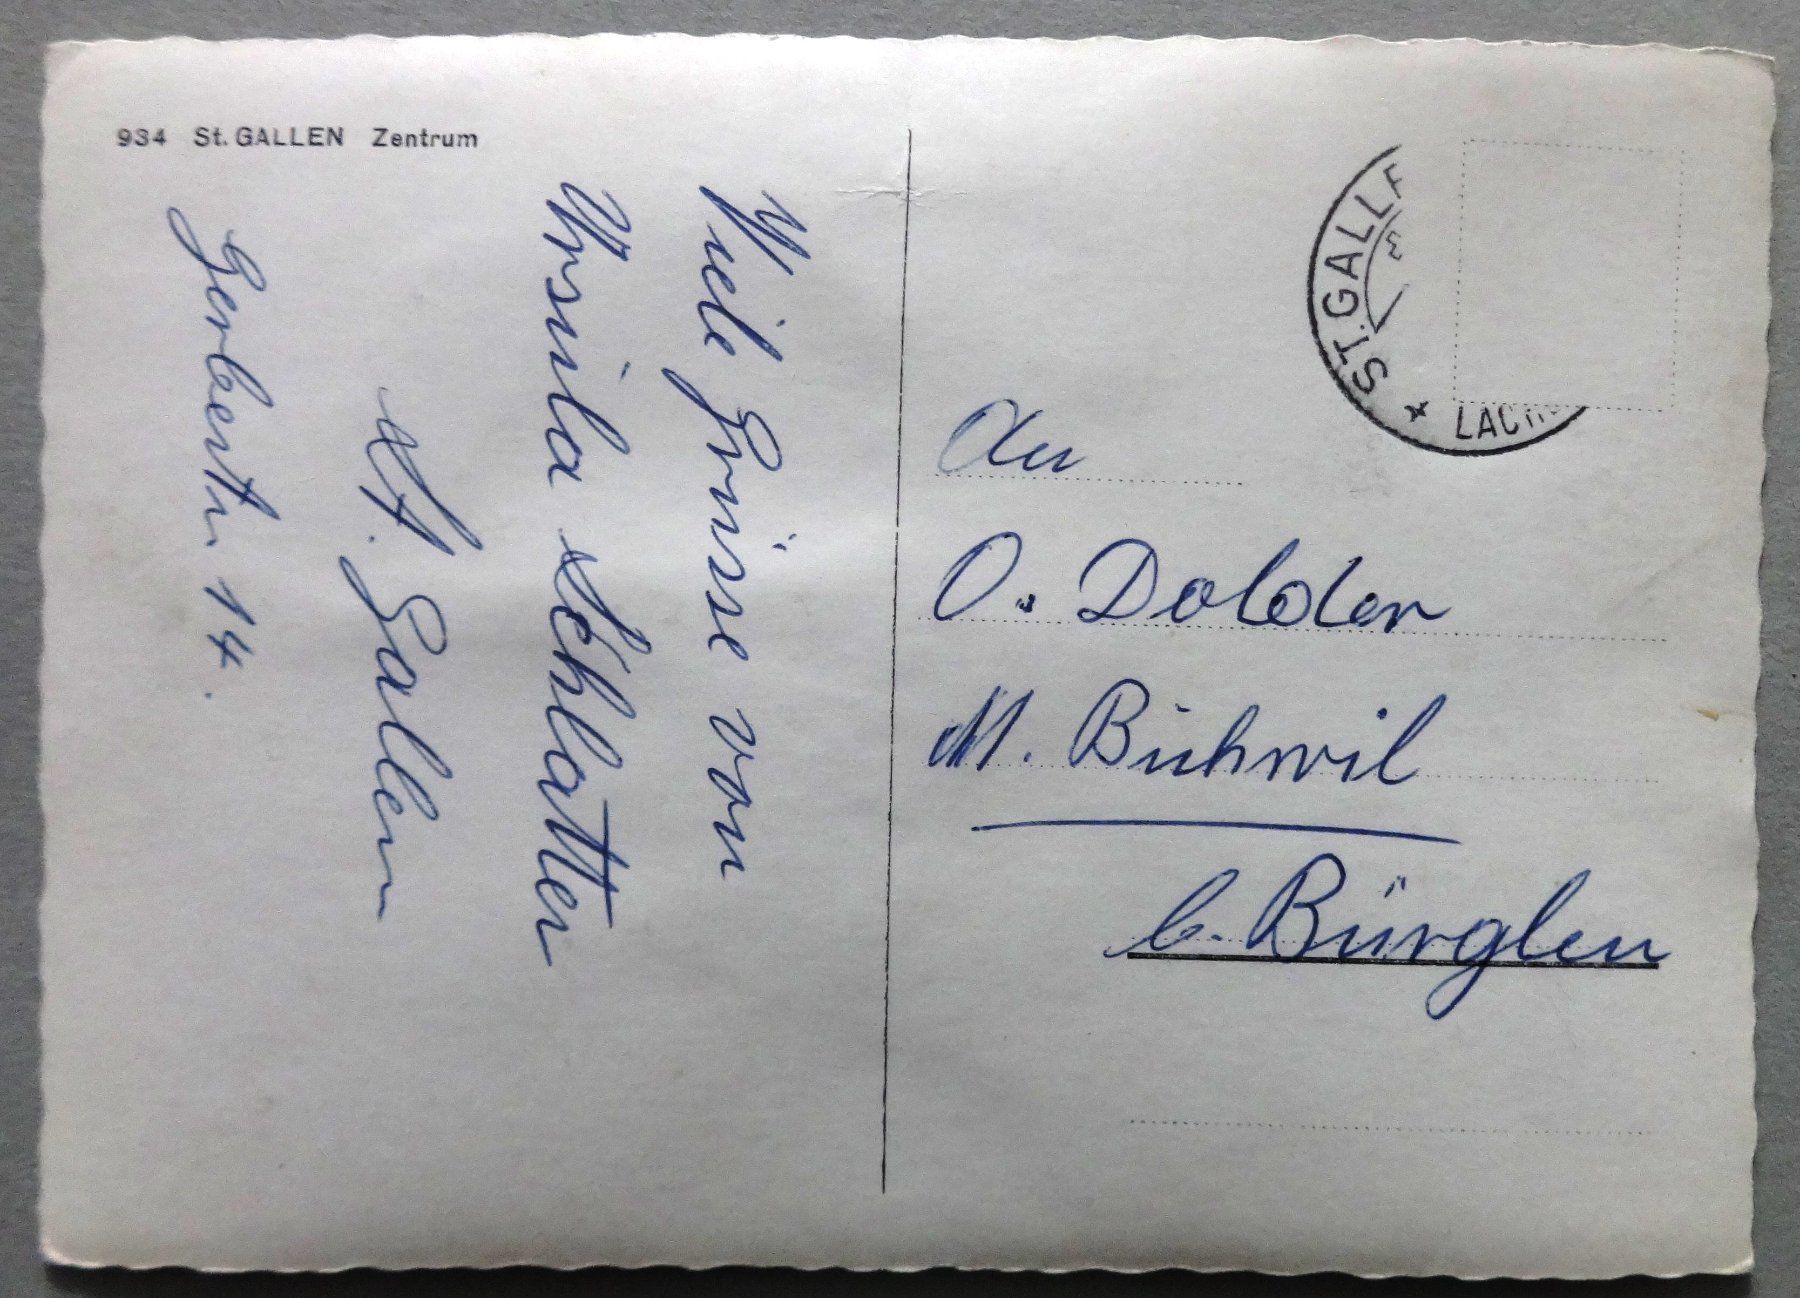 934 St. GALLEN Zentrum
Viele Grüsse von
Ursula Schlatter
St. Gallen
Gerbestr. 14.
ST. GALLE
LACH
An
O. Dolder
M. Bühwil
b. Bürglen